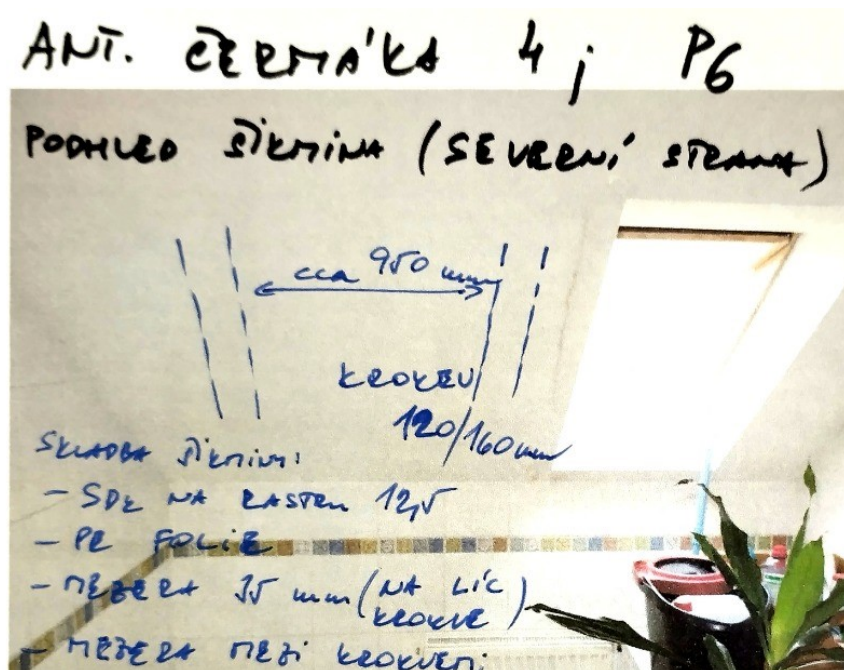 ANT. ČERMÁKA 4 ; P6
PODHLED ŠIKMINA (SEVERNÍ STRANA)
cca 950 mm
KROKEV
120/160 mm
SKLADBA ŠIKMINY:
- SDK NA RASTRU 12,5
- PE FOLIE
- MEZERA 35 mm (NA LÍC
KROKVE)
- MEZERA MEZI KROKVEMI